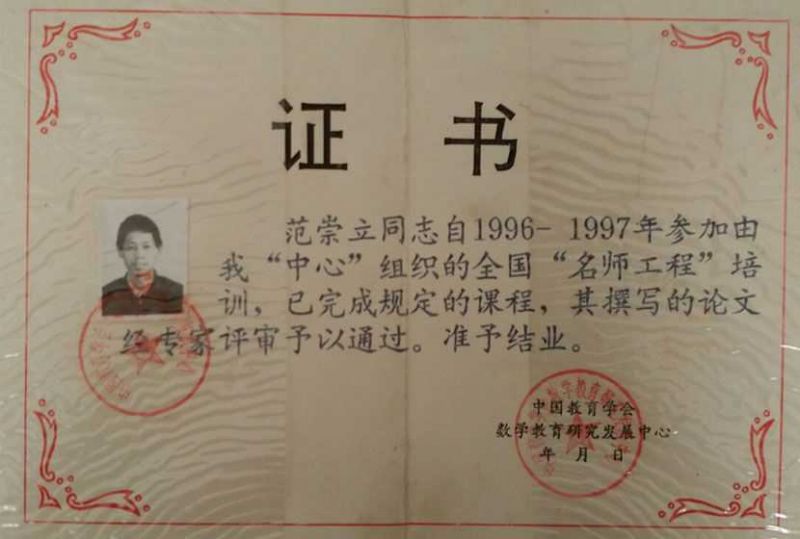 证 书
范崇立同志自1996- 1997年参加由
我“中心”组织的全国“名师工程”培
训，已完成规定的课程，其撰写的论文
经专家评审予以通过。准予结业。
中国教育学会
数学教育研究发展中心
年 月 日